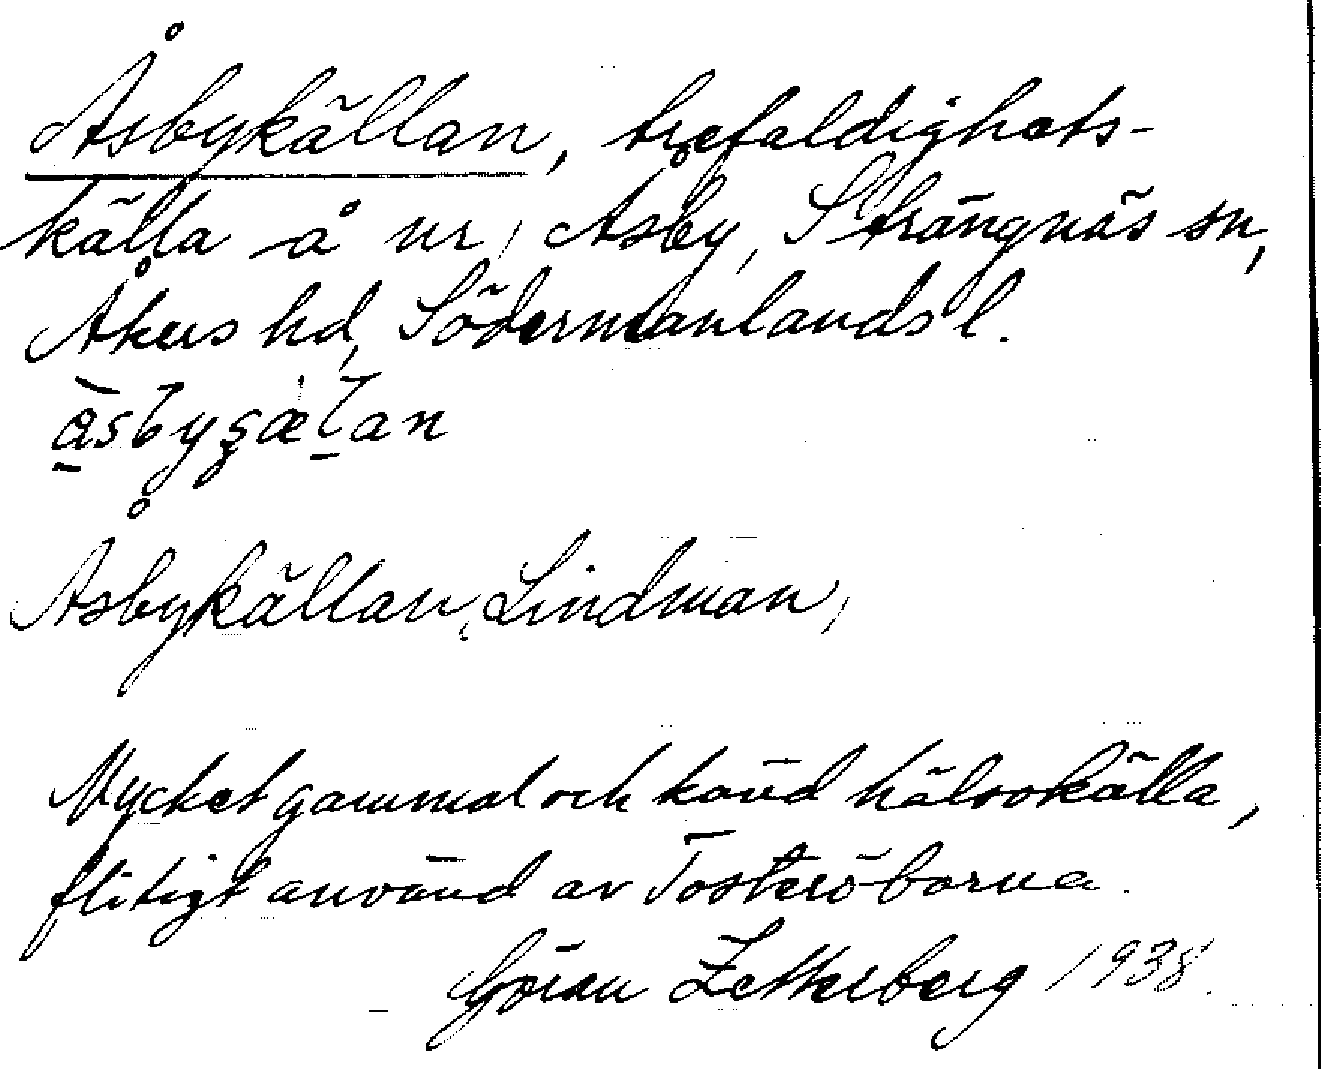 Åsbykällan, trefaldighets-
källa å nr 1 Åsby, Strängnäs sn,
Åkers hd, Södermanlands l.
Åsbykällan, Lindman,
Mycket gammal och känd hälsokälla,
flitigt använd av Tosteröborna.
Göran Zetterberg 1938.